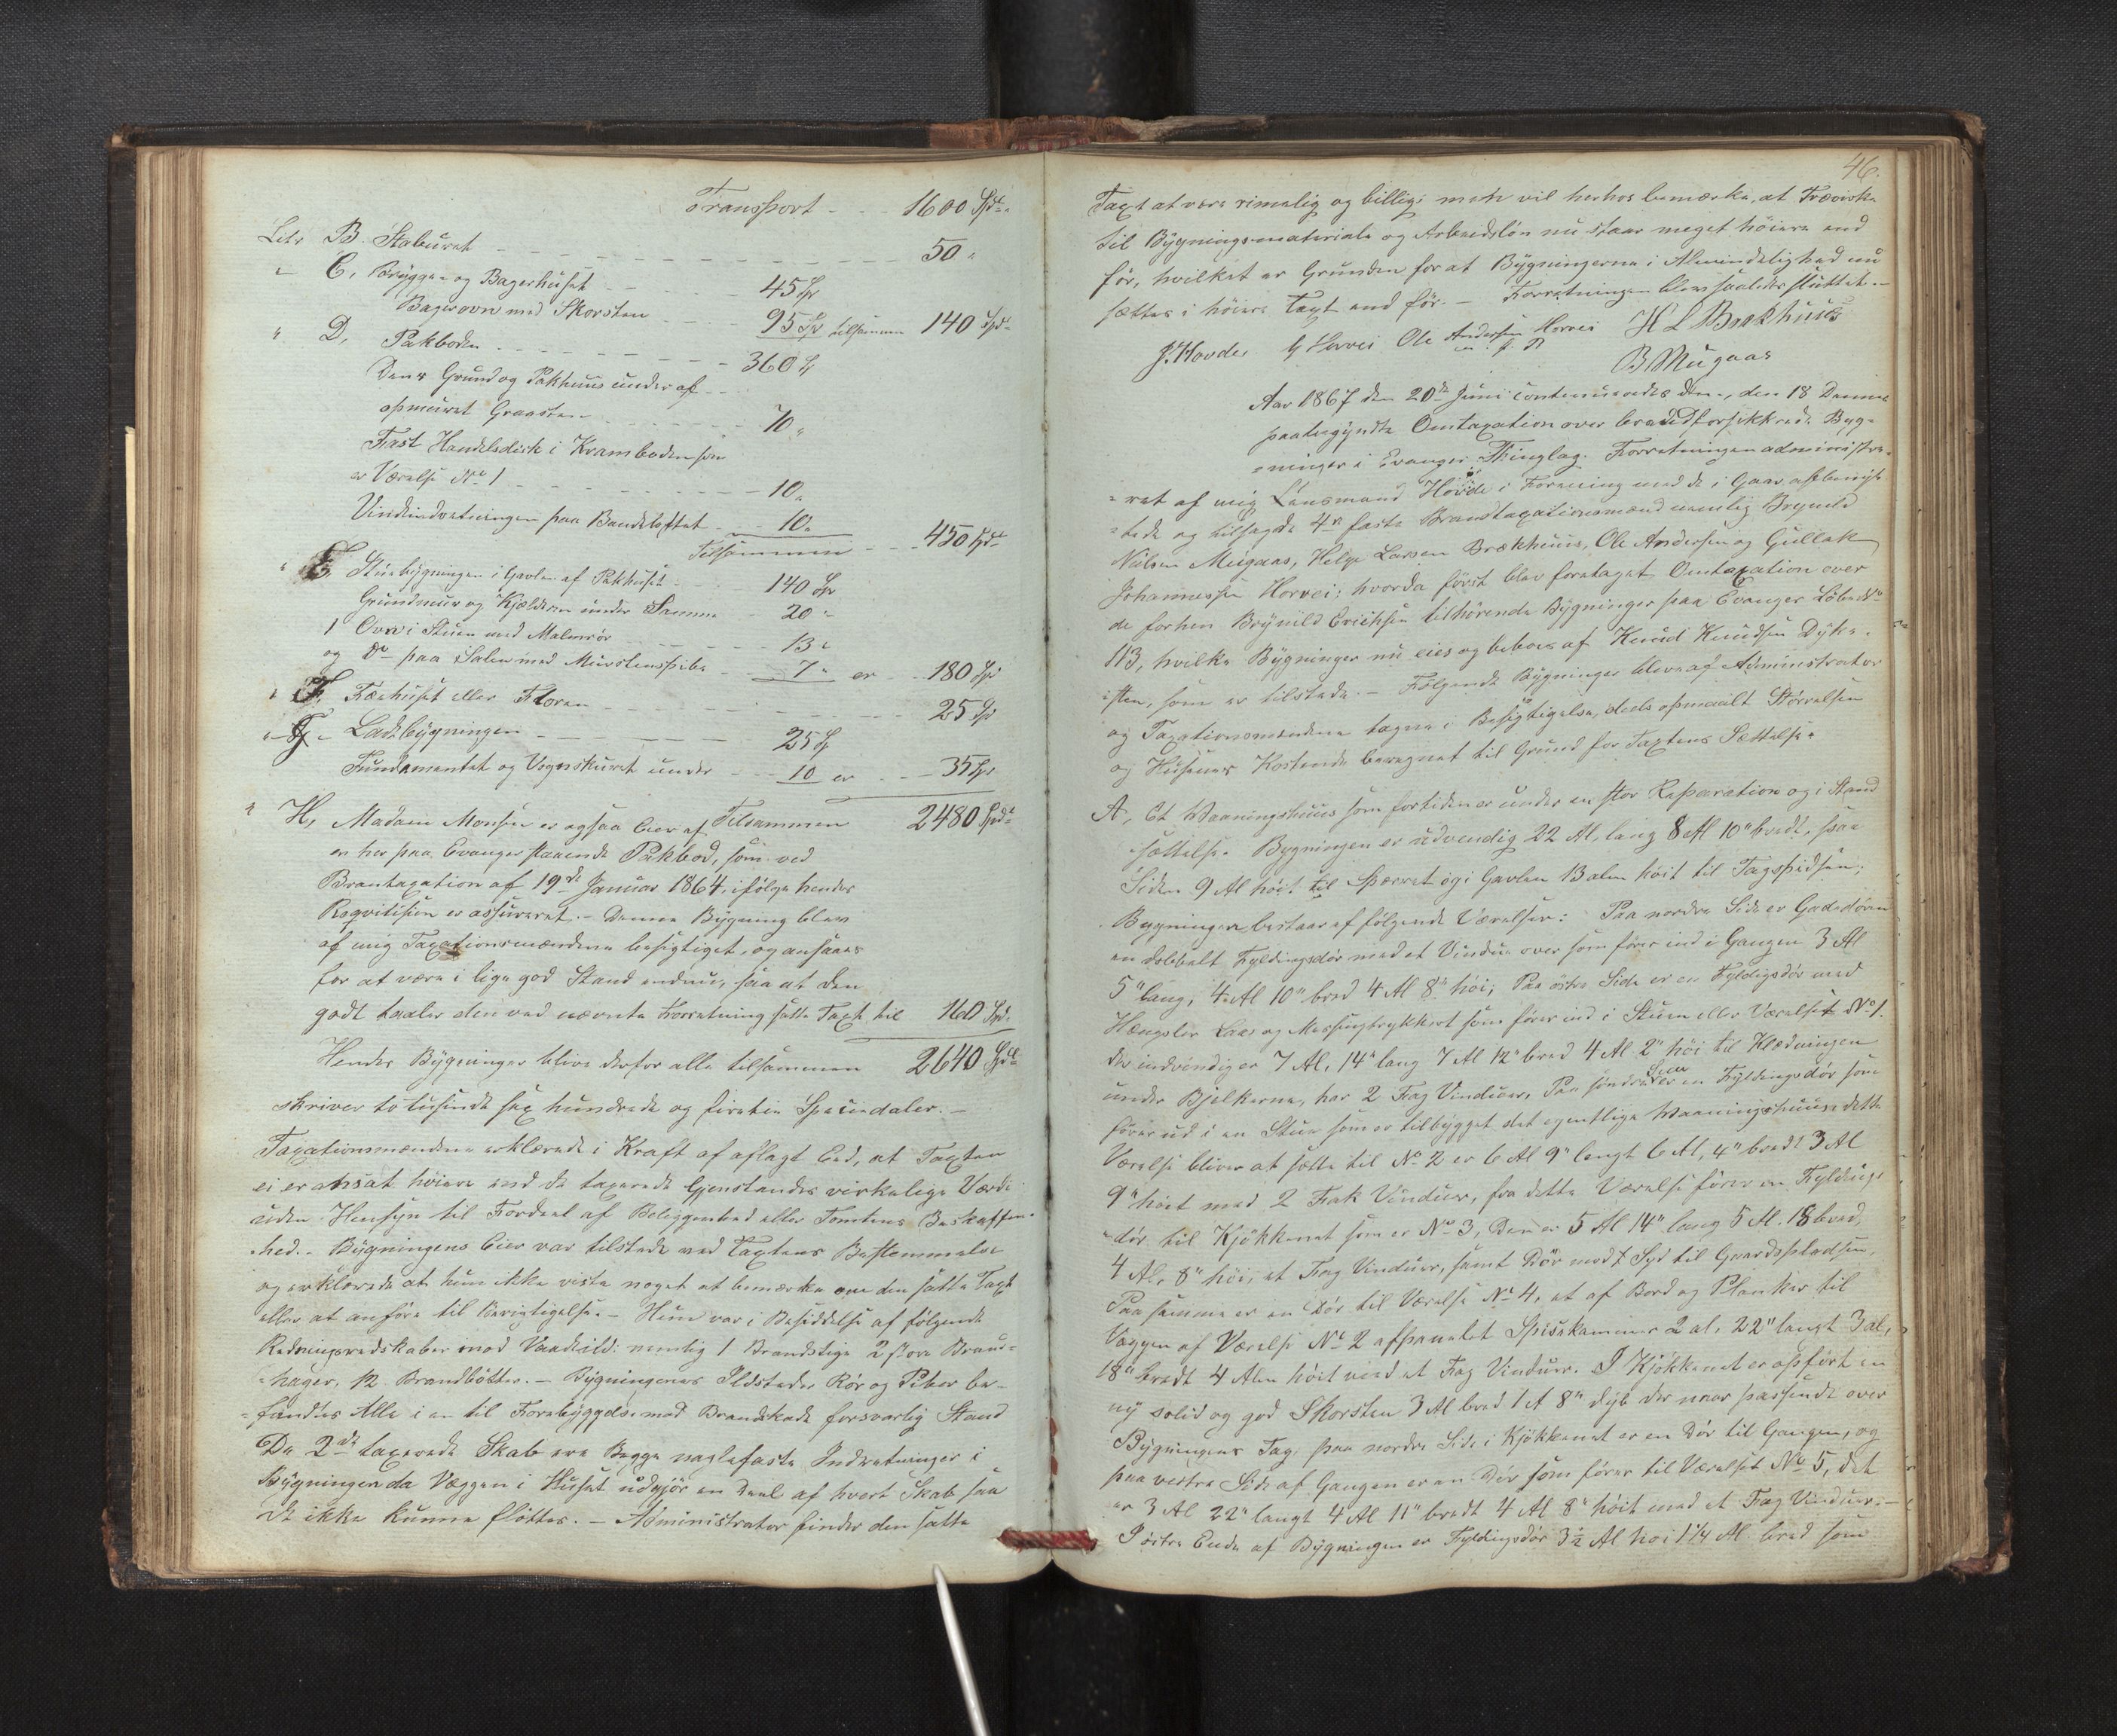 Transport - - 1600 Spd.
Litr B. Staburet - - - - - - 50 "
" C. Brygge- og Bagerhuset - - 45 Sp
Bagerovn med Skorsten - - 95 Sp tilsammen 140 Spd.
" D. Pakboden - - - - - 360 Sp
Dens Grund og Pakhuus under af
opmuret Graasten - - - - 70 "
Fast Handelsdisk i Kramboden som
er Værelse No 1 - - - - - 10 "
Vindindretningen paa Bandeloftet - - 10 "
Tilsammen - - 450 Spd.
" E. Stuebygningen i Gavlen af Pakhuset - 140 Sp
Grundmur og Kjælderen under Samme - 20 "
1 Ovn i Stuen med Malmrør - - 13 "
og do paa Salen med Murstenspibe - - 7 " er - - 180 Sp
" F. Fæehuset eller Floren - - - - - 25 Sp
" G. Ladebygningen - - - - 25 Sp
Fundamentet og Vognskuret under - - 10 er - - 35 Sp
Tilsammen 2480 Spd.
" H, Madam Monsen er ogsaa Eier af
en her paa Evanger staaende Pakbod, som ved
Brantaxation af 19de Januar 1864, ifølge hendes
Reqvitision er assureret. - Denne Bygning blev
af mig Taxationsmændene besigtiget, og ansaaes
for at være i lige god Stand endnu, saa at den
godt taaler den ved nævnte Forretning satte Taxt til 160 Spd.
Hendes Bygninger blive derfor alle tilsammen 2640 Spd.
skriver to tusinde sex hundrede og firetie Speciedaler. -
Taxationsmændene erklærede i Kraft af aflagt Eed, at Taxten
ei er ansat høiere end de taxerede Gjenstandes virkelige Værdi
uden Hensyn til Fordeel af Beliggenhed eller Tomtens Beskaffen-
-hed. - Bygningens Eier var tilstede ved Taxtens Bestemmelse
og erklærede at hun ikke viste noget at bemærke om den satte Taxt
eller at anføre til Berigtigelse. - Hun var i Besiddelse af følgende
Redningsredskaber mod Vaadeild: nemlig 1 Brandstige 2 store Brand-
-hager, 12 Brandbøtter. - Bygningernes Ildsteder Rør og Piber be-
-fandtes Alle i en til Forebyggelse mod Brandskade forsvarlig Stand
De 2de taxerede Skab ere Begge naglefaste Indretninger i
Bygningen da Væggen i Huset udgjør en Deel af hvert Skab saa
de ikke kunne fløttes. - Administrator finder den satte
46.
Taxt at være rimelig og billig; men vil herhos bemærke, at Trævirke
til Bygningsmateriale og Arbeidsløn nu staar meget høiere end
før, hvilket er Grunden for at Bygningerne i Almindelighed nu
sættes i høiere Taxt end før. - Forretningen blev saaledes sluttet. -
J. Hovde G Horvei Ole Andersen Horvei H L Brækhuus
m. p. P. B. Mugaas
Aar 1867 den 20de Juni continueredes den, den 18 Dennes
paabegyndte Omtaxation over brandforsikkrede Byg-
-ninger i Evanger Thinglag. Forretningen administre-
-ret af mig Lensmand Hovde i Forening med de i Gaar opbenyt
-tede og tilsagde 4re faste Brantaxationsmænd nemlig Brynild
Nielsen Mugaas, Helge Larsen Brækhuus, Ole Andersen og Gullak
Johannessen Horvei; hvorda først blev foretaget Omtaxation over
de forhen Brynild Erichsen tilhørende Bygninger paa Evanger Løbe No
113, hvilke Bygninger nu eies og beboes af Knud Knudsen Dyke-
-sten, som er tilstede. - Følgende Bygninger bleve af Administrator
og Taxationsmændene tagne i Besigtigelse, deels opmaalt Størrelsen
og Husenes Kostende beregnet til Grund for Taxtens Sættelse.
A, Et Vaaningshuus som fortiden er under en stor Reparation og i Stand
sættelse. Bygningen er udvendig 22 Al. lang 8 Al 10" bredt, paa
Siden 9 Al høit til Spærret og i Gavlen 13 alen høit til Tagspidsen;
Bygningen bestaar af følgende Værelser: Paa nordre Side er Gadedøren
en dobbelt Fyldingsdør med et Vindue over som fører ind i Gangen 3 Al
5" lang, 4 Al 10" bred 4 Al 8" høi; Paa østre Side er en Fyldigsdør med
Hængsler Laas og Messingtrykkert som fører ind i Stuen eller Værelset No 1.
der indvendig er 7 Al, 14" lang 7 Al 12" bred 4 Al 2" høi til Klædningen
under Bjelkerne, har 2 Fag Vinduer, Paa søndre Side er en Fyldingsdør som
fører ud i en Stue som er tilbygget det egentlige Vaaningshuus; dette
Værelse bliver at sette til No 2 er 6 Al 9" langt 6 Al, 4" bredt 3 Al
9" høit med 2 Fak Vinduer, fra dette Værelse fører en Fyldings
-dør til Kjøkkenet som er No 3, Den er 5 Al 14" lang 5 Al. 18 bred,
4 Al, 8" høi; et Fag Vinduer, samt Dør mod Syd til Gaardspladsen,
Paa samme er en Dør til Værelse No 4, et af Bord og Planker til
Væggen af Værelse No 2 afpanelet Spisekammer 2 al, 22" langt 3 al,
18" bredt 4 Alen høit med et Fag Vinduer. I Kjøkkenet er opført en
ny solid og god Skorsten 3 Al bred 1 Al 8" dyb der naar passende over
Bygningens Tag, paa nordre Side i Kjøkkenet er en Dør til Gangen, og
paa vestre Side af Gangen er en Dør som fører til Værelset No 5, det
er 3 Al 22" langt 4 Al 11" bredt 4 Al 8" høit med et Fag Vinduer. -
I østre Ende af Bygningen er Fyldingsdør 3½ Al høi 1¼ Al bred som